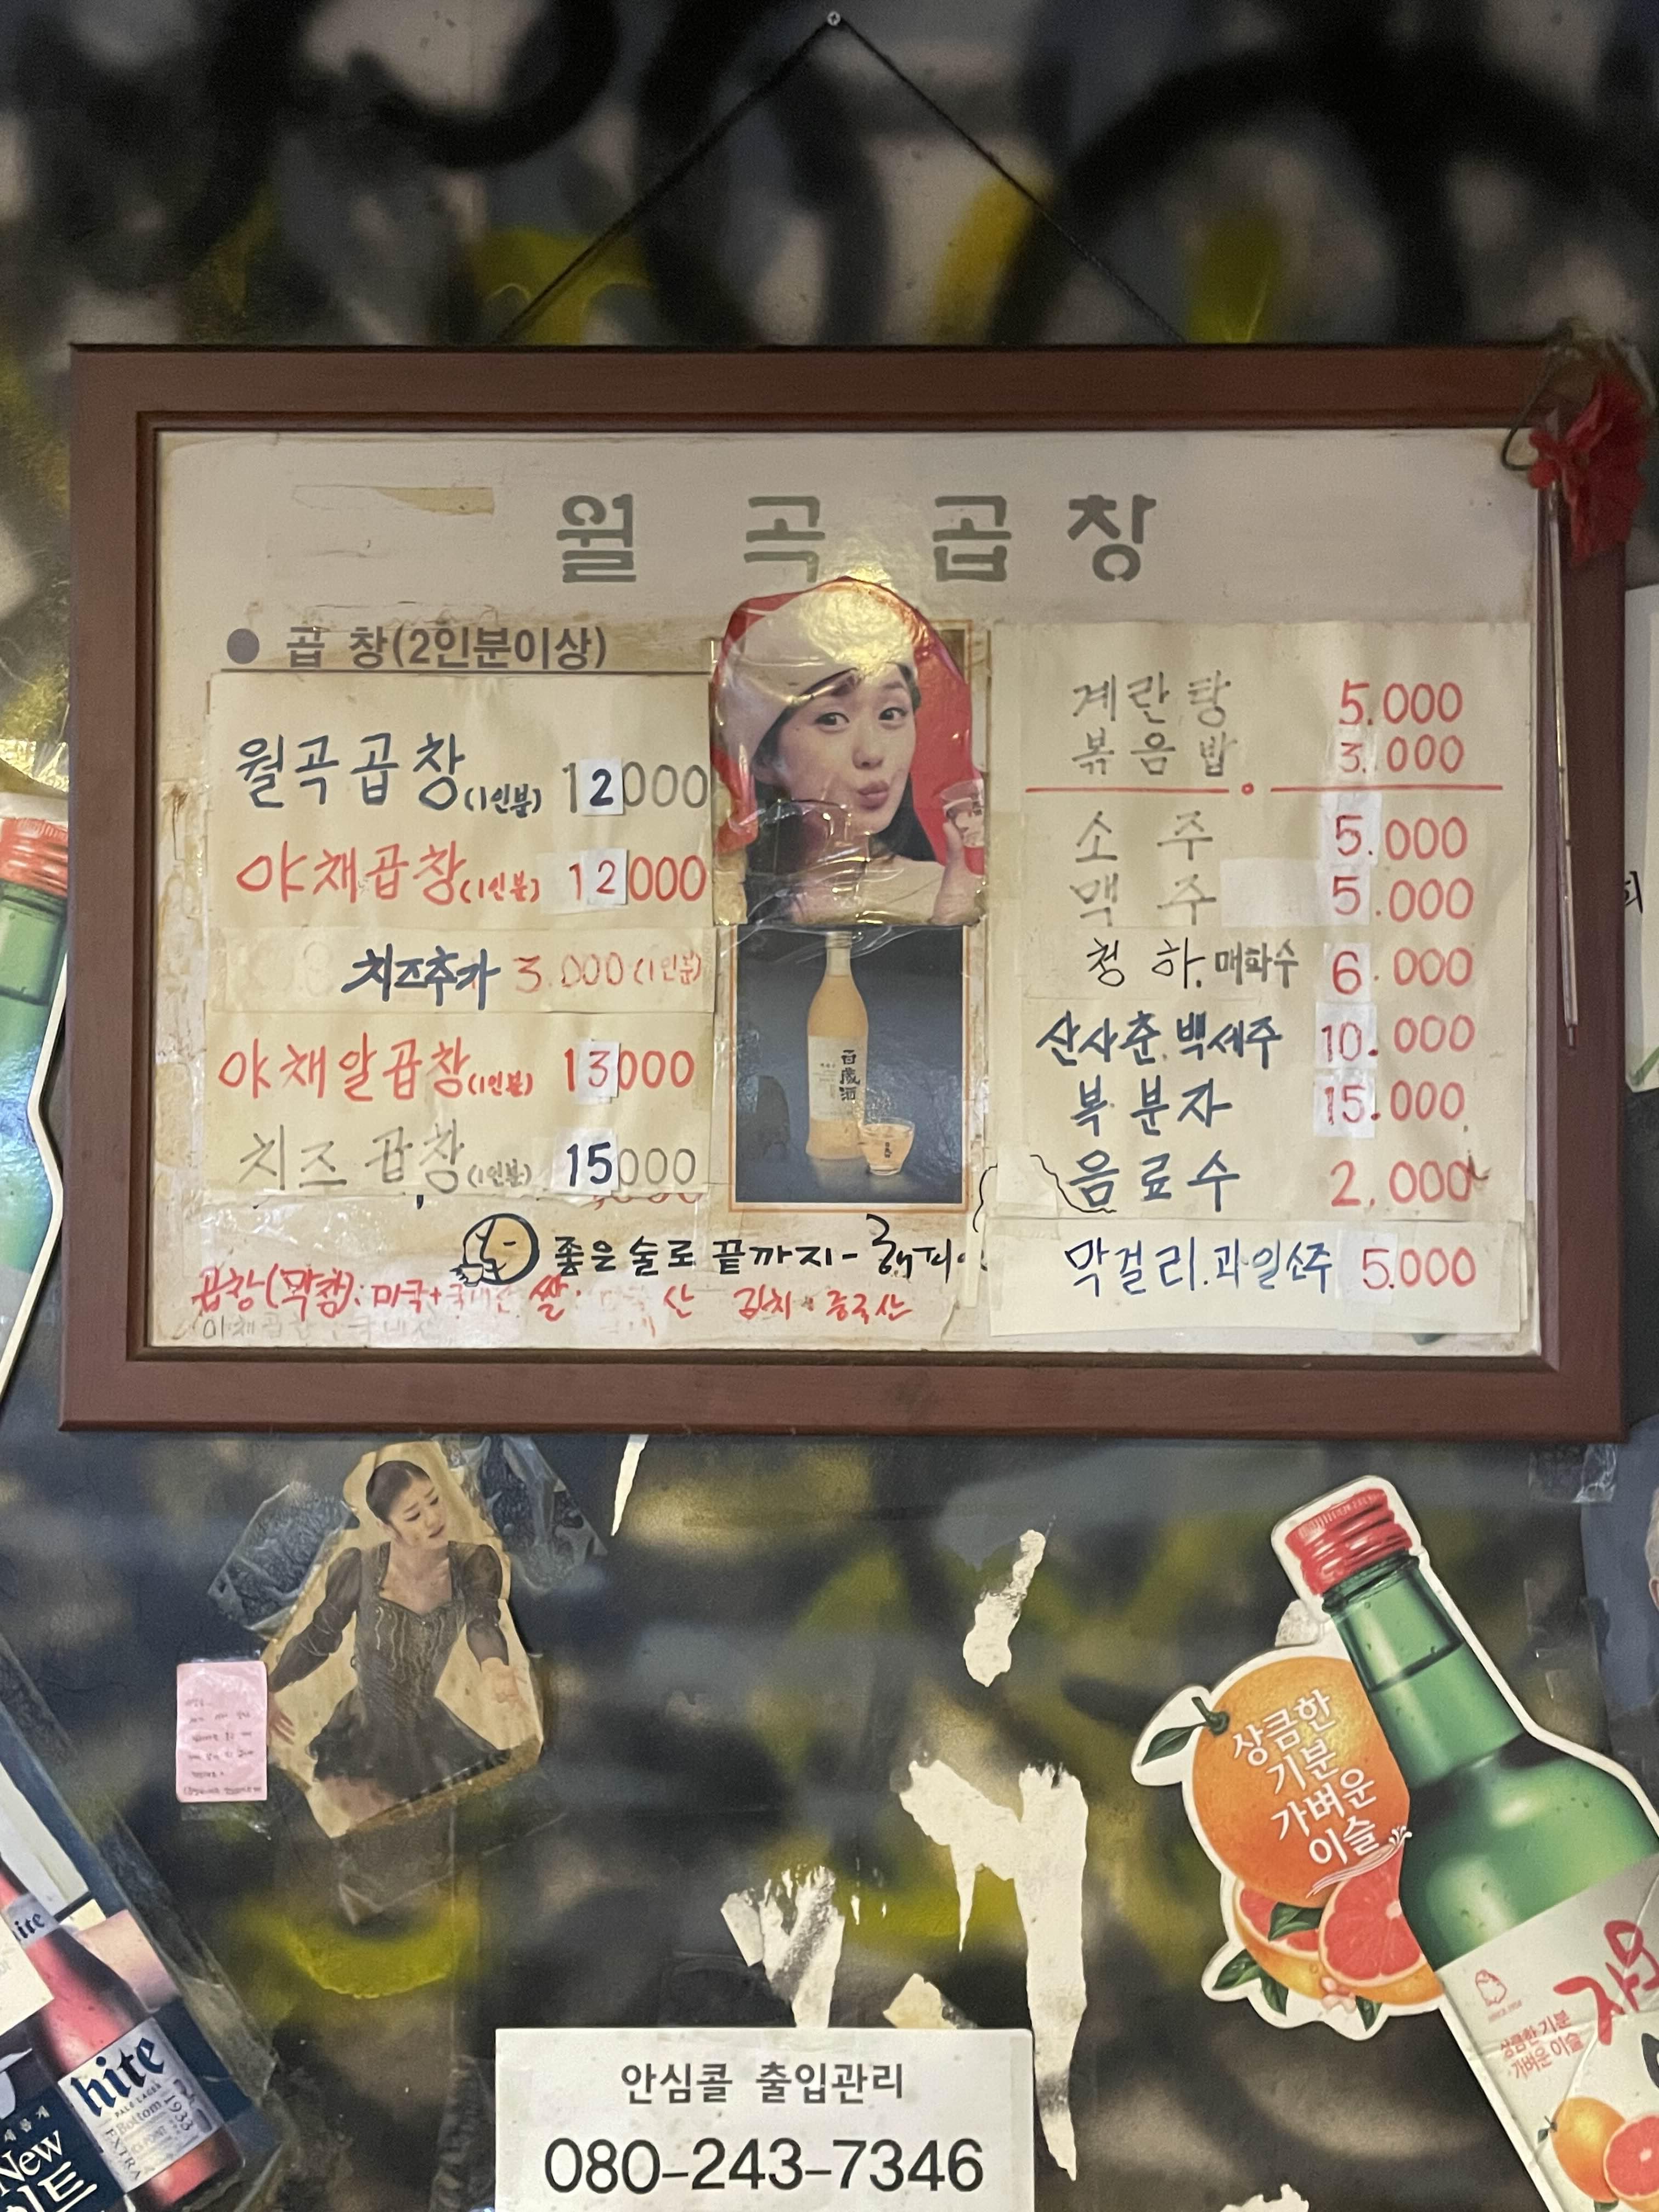 월곡곱창
● 곱창(2인분이상)
월곡곱창(1인분) 12000
야채곱창(1인분) 12000
치즈추가 3.000(1인분)
야채알곱창(1인분) 13000
치즈곱창(1인분) 15000
좋은술로 끝까지-
곱창(막창): 미국+국내산 쌀: 산 김치: 중국산
百歲酒
계란탕 5.000
볶음밥 3.000
소주 5.000
맥주 5.000
청하.매화수 6.000
산사춘.백세주 10.000
복분자 15.000
음료수 2.000
막걸리.과일소주 5.000
상큼한
기분
가벼운
이슬
상큼한 기분
가벼운 이슬
hite
PALE LAGER
Bottom
1933
EXTRA
New
안심콜 출입관리
080-243-7346